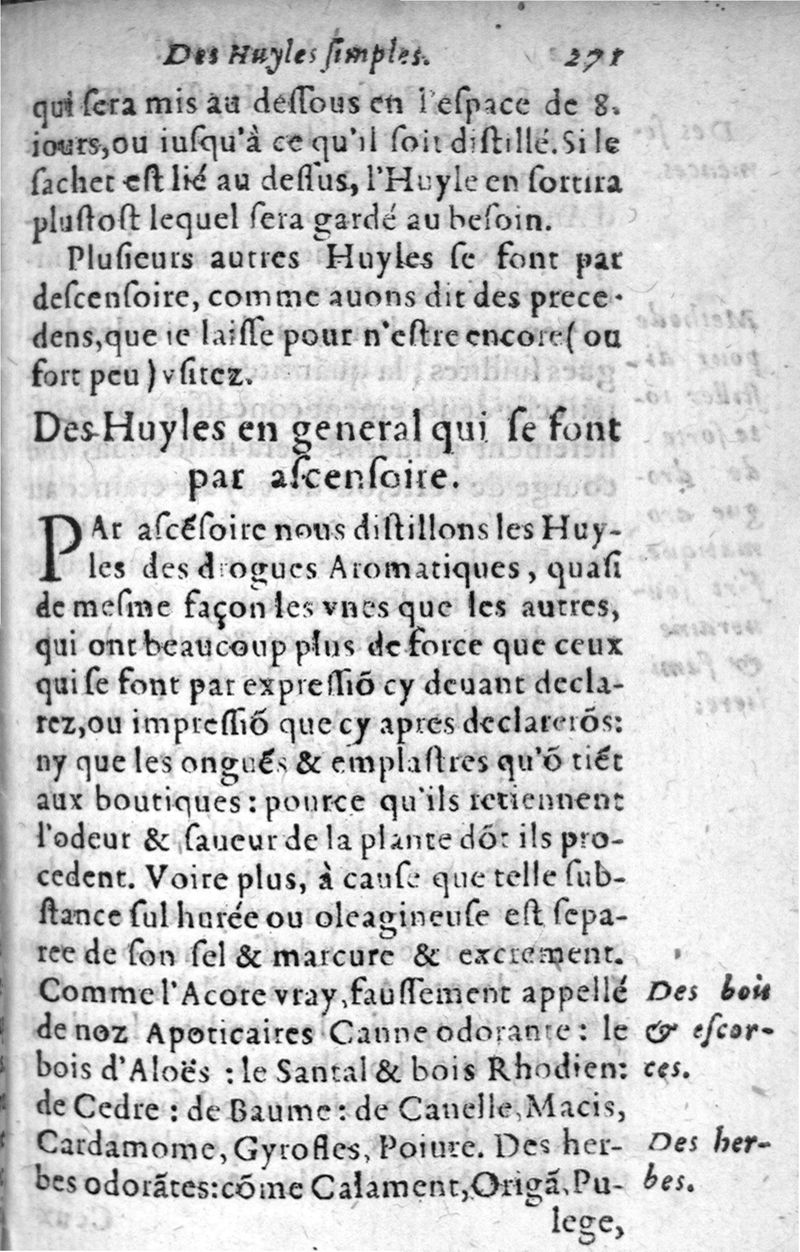 Des Huyles ſimples. 271
qui ſera mis au deſſous en l'eſpace de 8.
iours, ou iuſqu'à ce qu'il ſoit diſtillé. Si le
ſachet eſt lié au deſſus, l'Huyle en ſortira
pluſtoſt lequel ſera gardé au beſoin.
Pluſieurs autres Huyles ſe font par
deſcenſoire, comme auons dit des prece-
dens, que ie laiſſe pour n'eſtre encore (ou
fort peu) vſitez.
Des Huyles en general qui ſe font
par aſcenſoire.
PAr aſcéſoire nous diſtillons les Huy-
les des drogues Aromatiques, quaſi
de meſme façon les vnes que les autres,
qui ont beaucoup plus de force que ceux
qui ſe font par expreſſiõ cy deuant decla-
rez, ou impreſſiõ que cy apres declarerõs:
ny que les onguẽs & emplaſtres qu'õ tiẽt
aux boutiques: pource qu'ils retiennent
l'odeur & ſaueur de la plante dõt ils pro-
cedent. Voire plus, à cauſe que telle ſub-
ſtance ſul hurée ou oleagineuſe eſt ſepa-
ree de ſon ſel & marcure & excrement.
Comme l'Acore vray, fauſſement appellé
de noz Apoticaires Canne odorante: le
bois d'Aloës: le Santal & bois Rhodien:
de Cedre: de Baume: de Canelle, Macis,
Cardamome, Gyrofles, Poiure. Des her-
bes odorãtes: cõme Calament, Origã, Pu-
lege,
Des bois
& eſcor-
ces.
Des her-
bes.